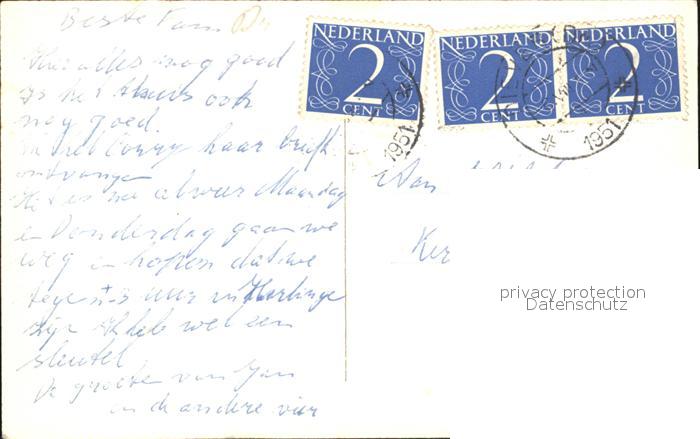 Beste Fam
Hier alles nog goed
is het thuis ook
nog goed.
Corry haar brief
ontvangen
Het is nu alweer Maandag
en Donderdag gaan we
weg en hopen dat we
tegen 3 uur in Harlingen
zijn Ik heb wel een
sleutel.
De groeten van Jan
en de andere vier
NEDERLAND
2
CENT
NEDERLAND
2
CENT
NEDERLAND
2
CENT
1951
1951
Aan
Ker
privacy protection
Datenschutz